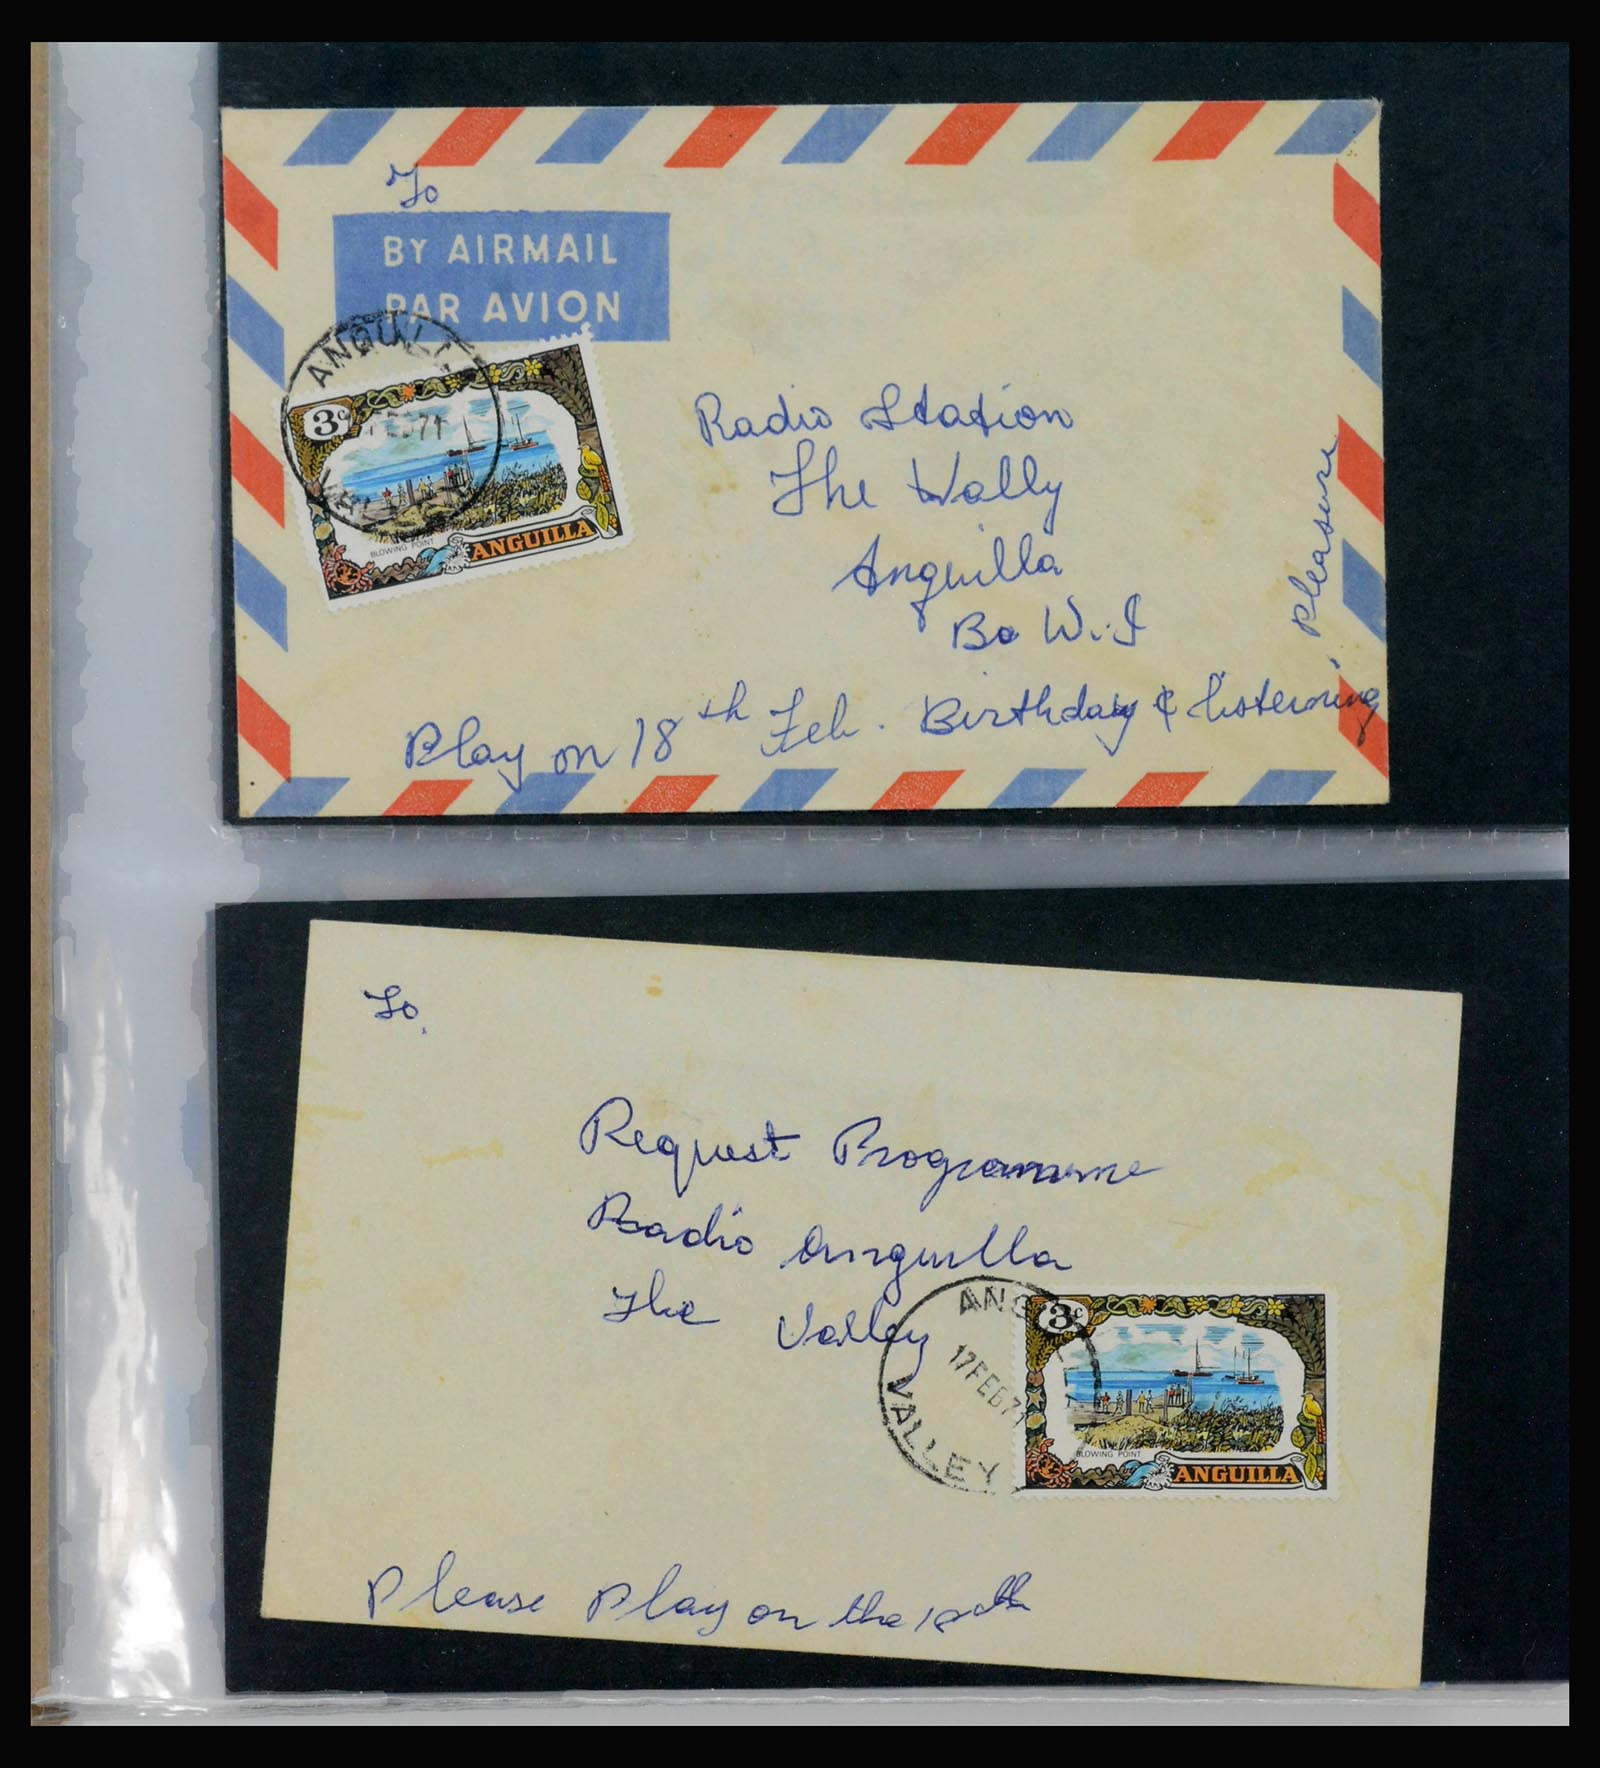 To
BY AIRMAIL
PAR AVION
3c
FEB71
BLOWING POINT
ANGUILLA
Radio Station
The Vally
Anguilla
Bo W.I
Play on 18th Feb. Birthday & listening
Pleasure
To
Request Programme
Radio Anguilla
The Valley
VALLEY
17FEB71
3c
BLOWING POINT
ANGUILLA
Please Play on the 18th